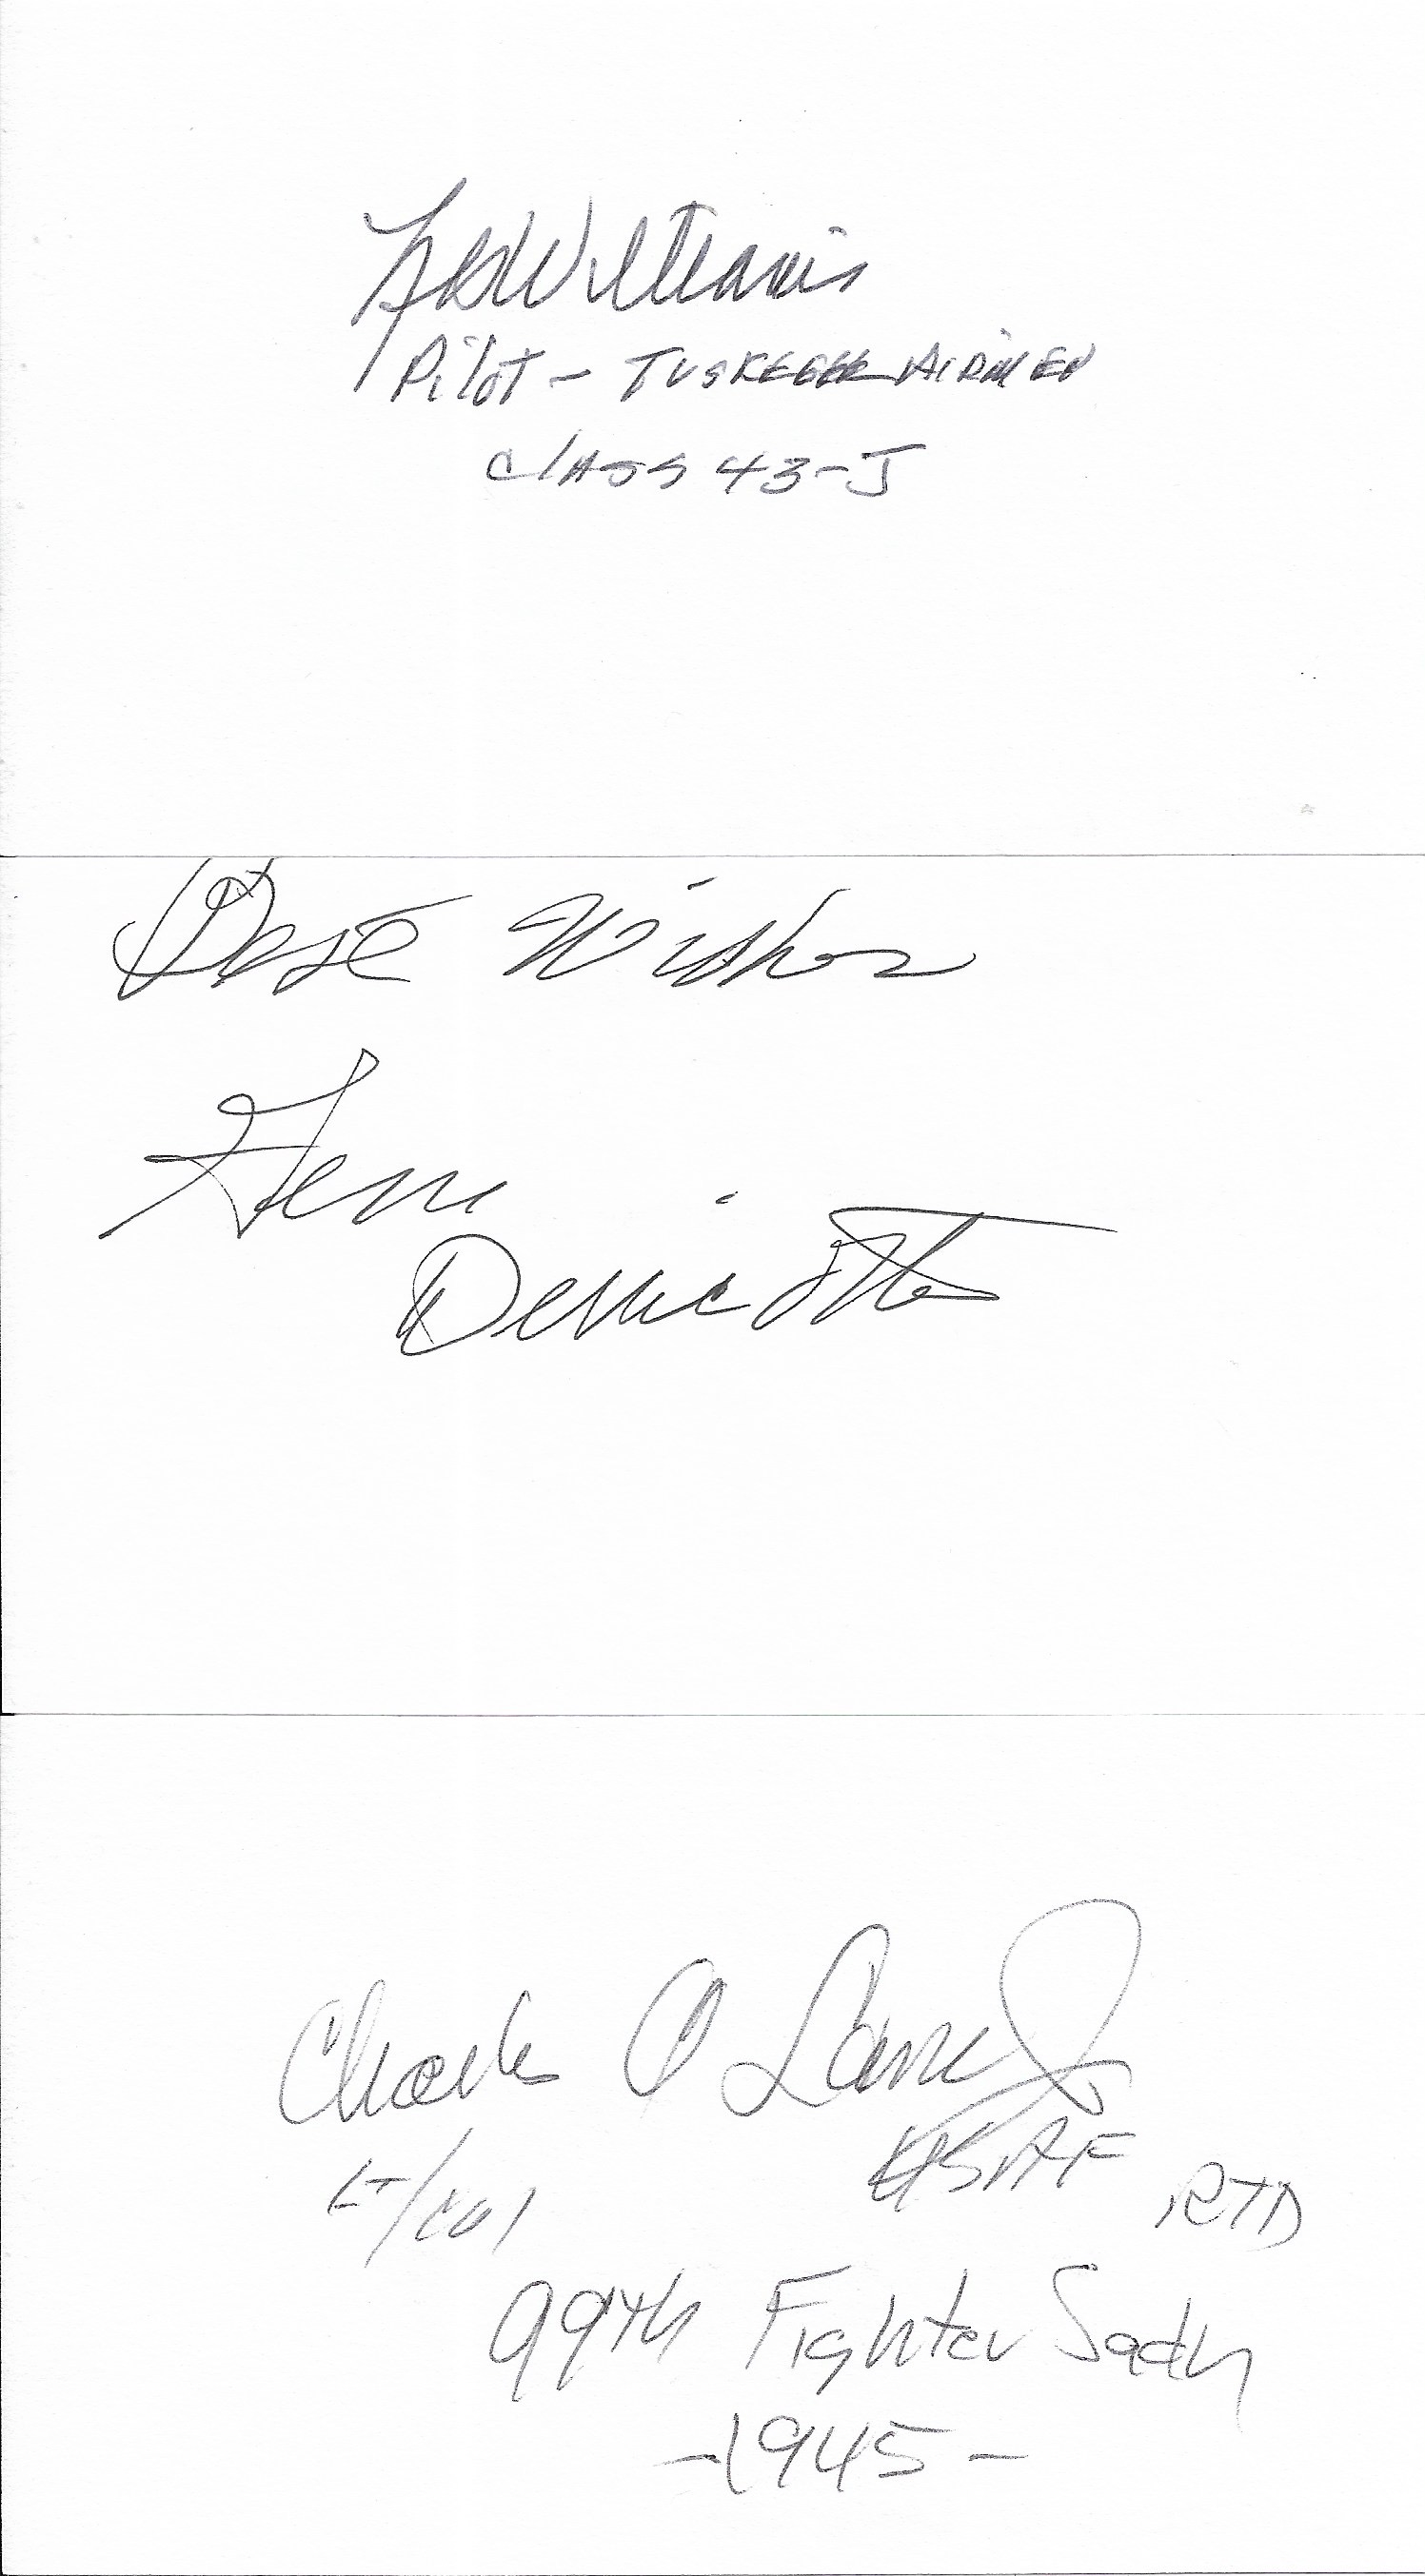 Williams
Pilot - TUSKEGEE AIRMEN
CLASS 43-J
Best Wishes
Gene
Derricotte
Charles A Lane Jr
Lt/Col USAF RTD
99th Fighter Sqdn
-1945-